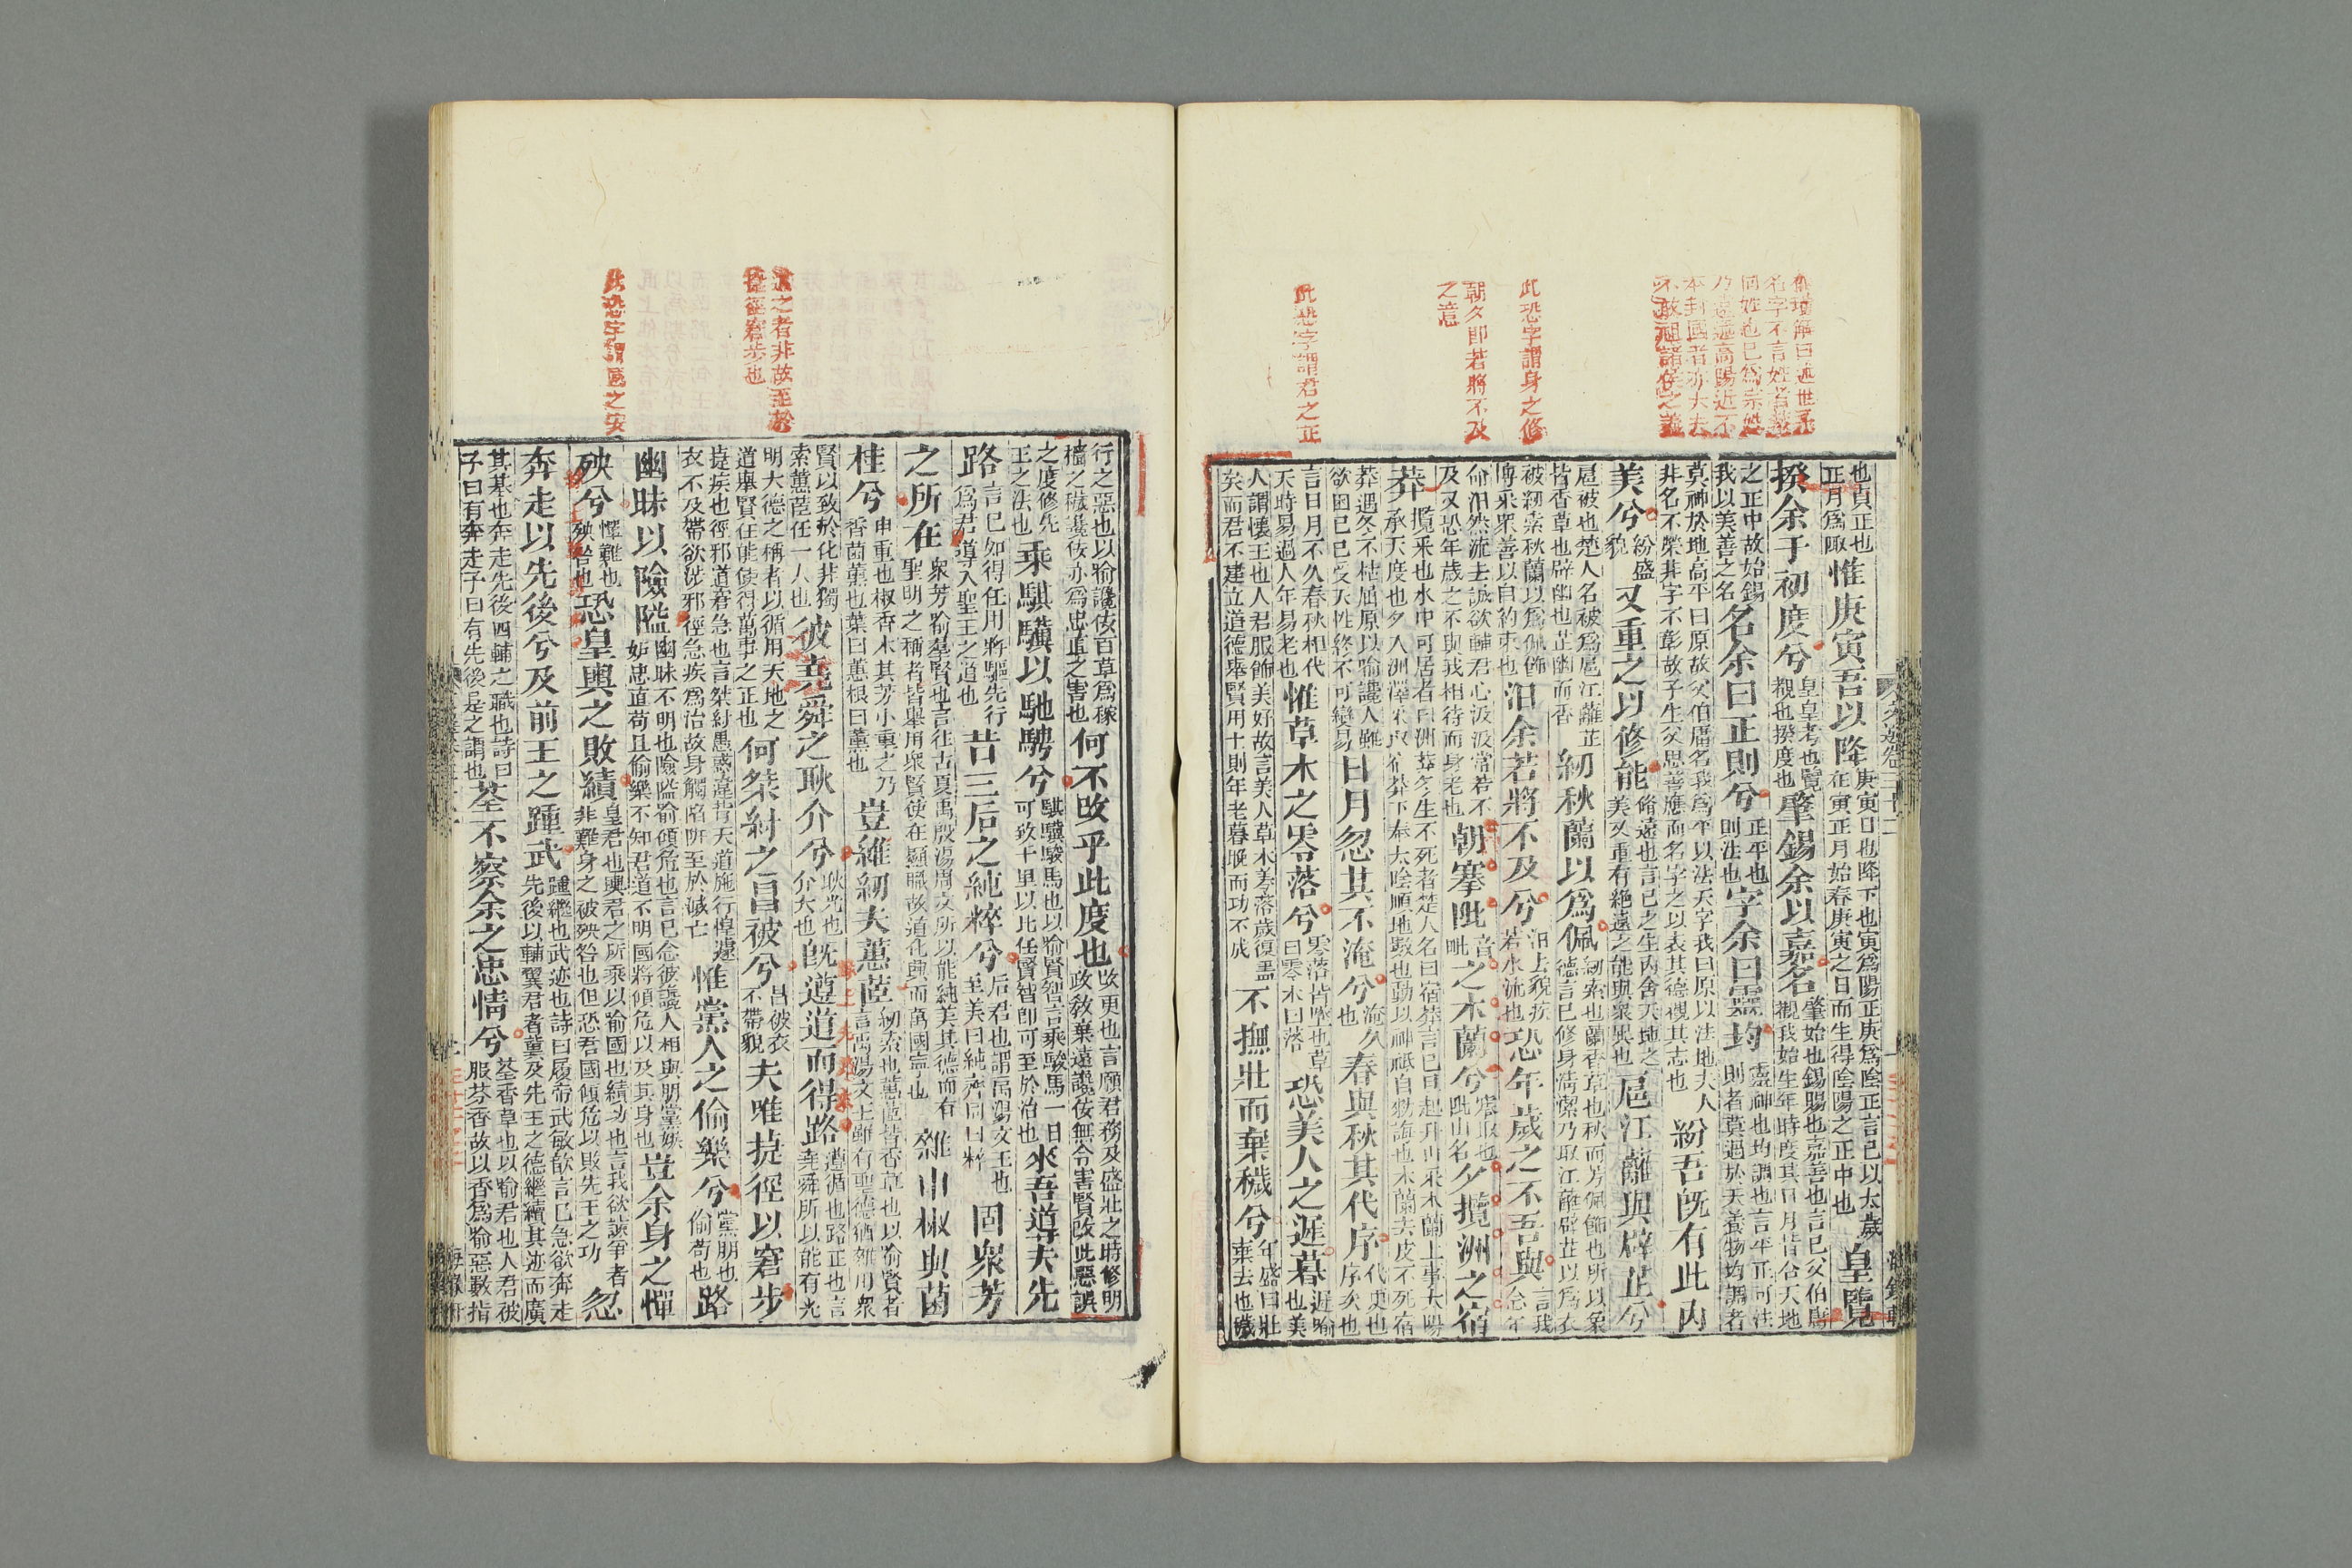 儀瓊解曰近世
名字不言姓者
同姓也已爲宗
乃遠述高陽近不
本封國者亦大夫
不敢祖諸侯之義
此恐字謂身之修
朝夕即若將不及
之意
此恐字謂君之正
也貞正也
正月爲陬
惟庚寅吾以降
庚寅日也降下也寅爲陽正庚爲陰正言己以太歲
在寅正月始春庚寅之日而生得陰陽之正中也
皇覽
揆余于初度兮
皇皇考也覽
觀也揆度也
肇錫余以嘉名
肇始也錫賜也嘉善也言己父伯庸
觀我始生年時度其日月皆合天地
之正中故始錫
我以美善之名
名余曰正則兮
正平也
則法也
字余曰靈均
靈神也均調也言平正可法
則者莫過於天養物均調者
莫神於地高平曰原故父伯庸名我爲平以法天字我曰原以法地夫人
非名不榮非字不彰故子生父思善應而名字之以表其德觀其志也
紛吾既有此内
美兮
紛盛
貌
又重之以修能
脩遠也言己之生内含天地之
美又重有絶遠之能與衆異也
扈江離與辟芷兮
扈被也楚人名被爲扈江離芷
皆香草也辟幽也芷幽而香
紉秋蘭以爲佩
紉索也蘭香草也秋而芳佩飾也所以象
德言己修身淸潔乃取江離辟芷以爲衣
被紉索秋蘭以爲佩飾
博采衆善以自約束也
汩余若將不及兮
汩去貌疾
若水流也
恐年歲之不吾與
言我
念年
命汨然流去誠欲輔君心汲汲常若不
及又恐年歲之不與我相待而身老也
朝搴阰
音
毗
之木蘭兮
搴取也
阰山名
夕攬洲之宿
莽
攬采也水中可居者曰洲草冬生不死者楚人名曰宿莽言己旦起升山采木蘭上事太陽
承天度也夕入洲澤采取宿莽下奉太陰順地數也動以神祇自勑誨也木蘭去皮不死宿
莽遇冬不枯屈原以喻讒人雖
欲困己己受天性終不可變易
日月忽其不淹兮
淹久
也
春與秋其代序
代更也
序次也
言日月不久春秋相代
天時易過人年易老也
惟草木之零落兮
零落皆墮也草
曰零木曰落
恐美人之遲暮
遲晩
也美
人謂懷王也人君服飾美好故言美人草木零落歲復盡
矣而君不建立道德舉賢用士則年老暮晩而功不成
不撫壯而棄穢兮
年盛曰壯
棄去也穢
遵之者非故至於
捷徑窘步也
此恐字謂國之安
行之惡也以喻讒佞百草爲稼
穡之穢讒佞亦爲忠直之害也
何不改乎此度也
改更也言願君務及盛壯之時修明
政敎棄遠讒佞無令害賢改此惡誤
之度修先
王之法也
乘騏驥以馳騁兮
騏驥駿馬也以喻賢智言乘駿馬一日
可致千里以比任賢智即可至於治也
來吾導夫先
路
言己如得任用將驅先行
爲君導入聖王之道也
昔三后之純粹兮
后君也謂禹湯文王也
至美曰純齊同曰粹
固衆芳
之所在
衆芳喻羣賢也言往古夏禹殷湯周文所以能純美其德而有
聖明之稱者皆舉用衆賢使在顯職故道化興而萬國寧也
雜申椒與菌
桂兮
申重也椒香木其芳小重之乃
香菌薰也葉曰蕙根曰薰也
豈維紉夫蕙茝
紉索也蕙茝皆香草也以喻賢者
言禹湯文王雖有聖德猶雜用衆
賢以致於化非獨
索蕙茝任一人也
彼堯舜之耿介兮
耿光也
介大也
既遵道而得路
遵循也路正也言
堯舜所以能有光
明大德之稱者以循用天地之
道舉賢任能使得萬事之正也
何桀紂之昌被兮
昌被衣
不帶貌
夫唯捷徑以窘步
捷疾也徑邪道窘急也言桀紂愚惑違背天道施行惶遽
衣不及帶欲涉邪徑急疾爲治故身觸陷阱至於滅亡
惟黨人之偷樂兮
黨朋也
偷苟也
路
幽昧以險隘
幽昧不明也險隘喻傾危也言己念彼讒人相與朋黨嫉
妬忠直苟且偷樂不知君道不明國將傾危以及其身也
豈余身之憚
殃兮
憚難也
殃咎也
恐皇輿之敗績
皇君也輿君之所乘以喻國也績功也言我欲諫爭者
非難身之被殃咎也但恐君國傾危以敗先王之功
忽
奔走以先後兮及前王之踵武
踵繼也武迹也詩曰履帝武敏歆言己急欲奔走
先後以輔翼君者冀及先王之德繼續其迹而廣
其基也奔走先後四輔之職也詩曰
予曰有奔走予曰有先後是之謂也
荃不察余之忠情兮
荃香草也以喻君也人君被
服芬香故以香爲喻惡數指